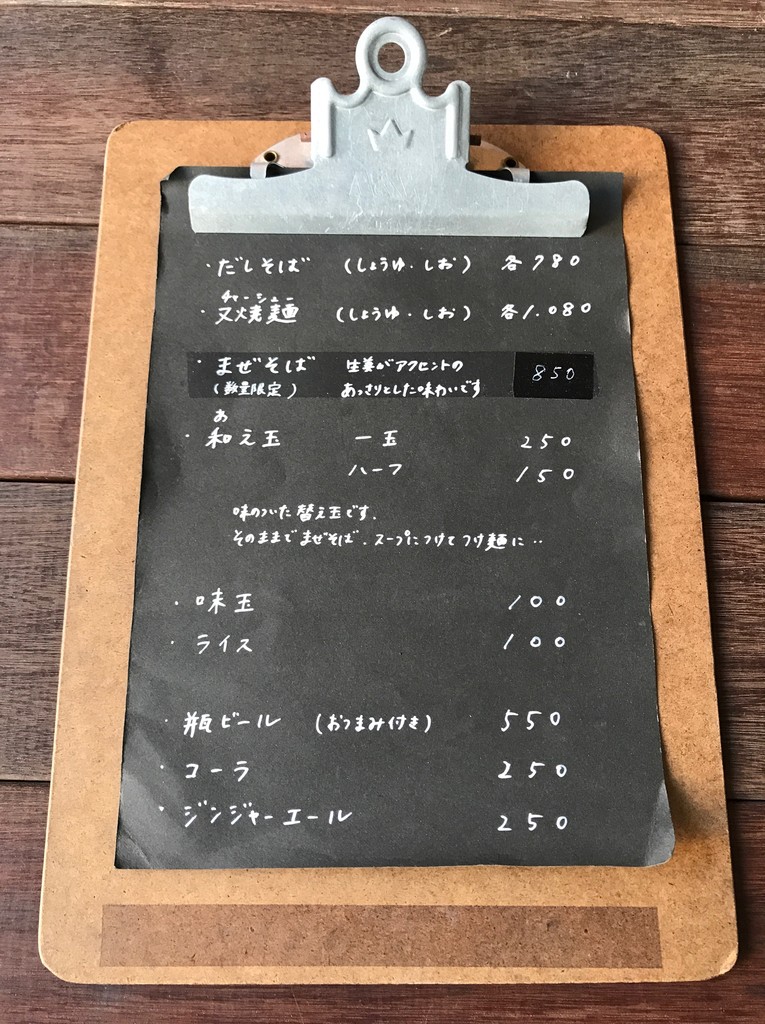 ・だしそば (しょうゆ・しお) 各780
チャーシュー
・叉焼麺 (しょうゆ・しお) 各1.080
・まぜそば 生姜がアクセントの 850
(数量限定) あっさりとした味わいです
あ
・和え玉 一玉 250
ハーフ 150
味のついた替え玉です.
そのままでまぜそば.スープにつけてつけ麺に‥
・味玉 100
・ライス 100
・瓶ビール (おつまみ付き) 550
・コーラ 250
・ジンジャーエール 250